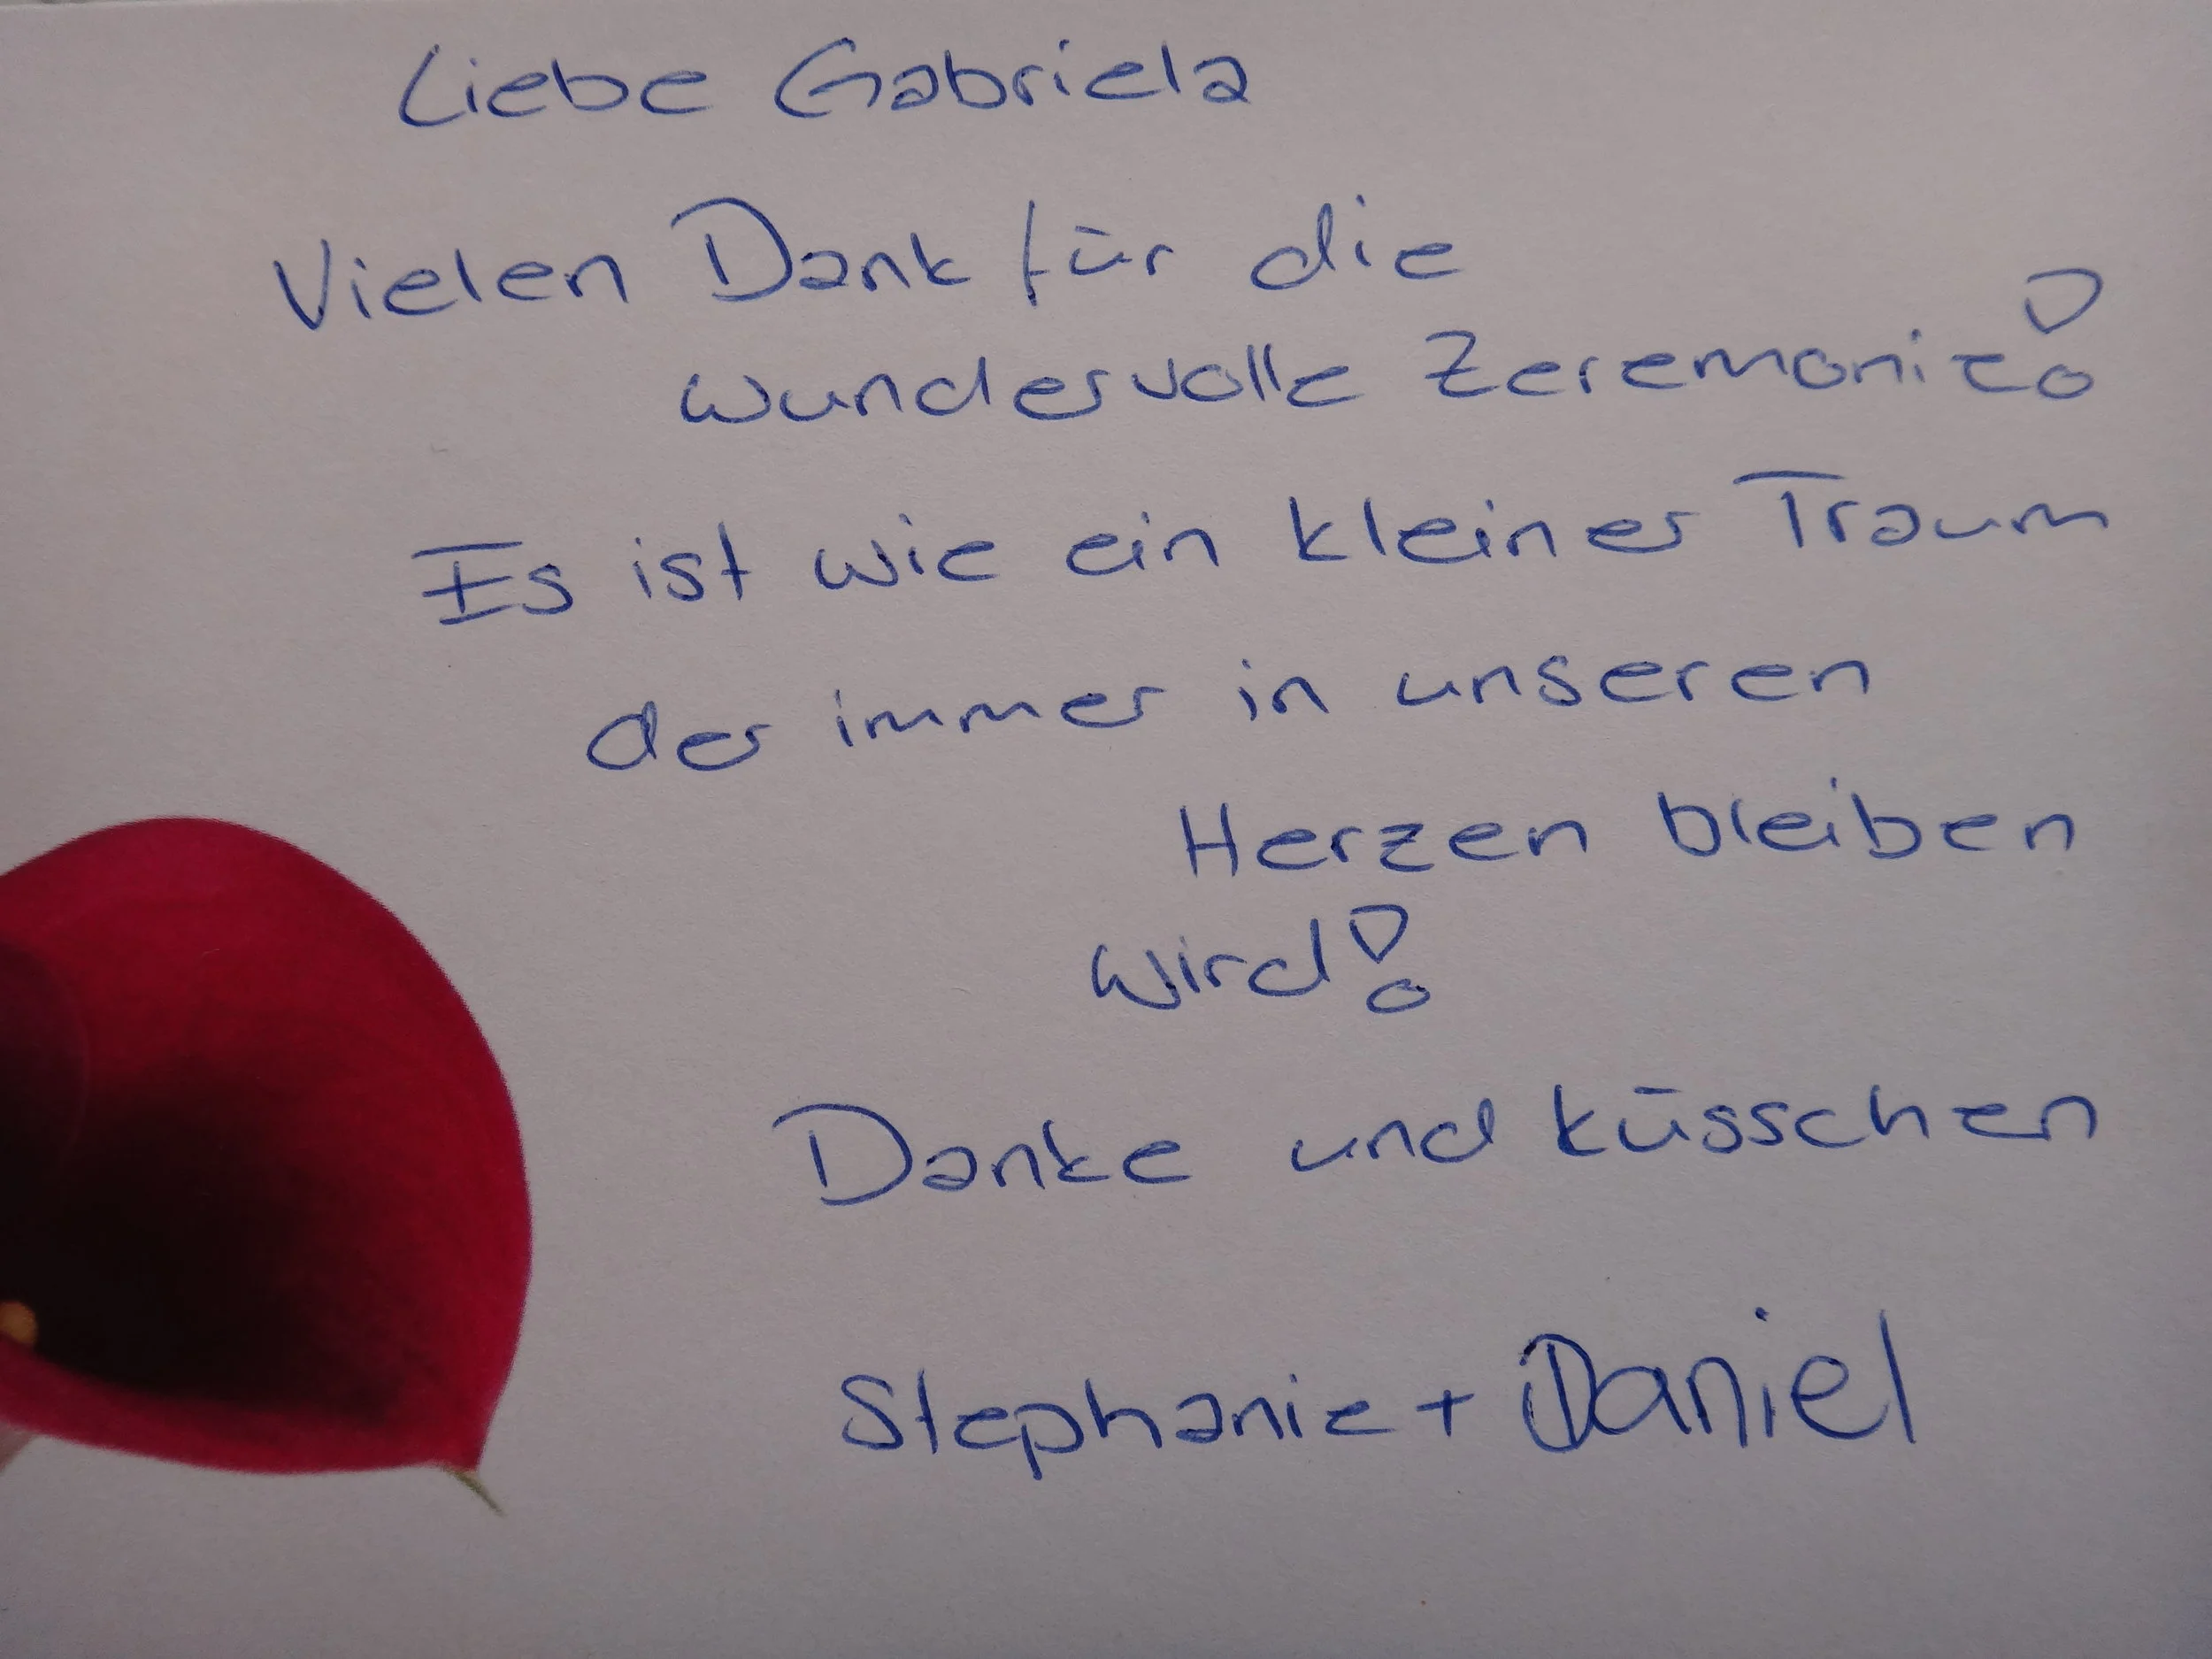 Liebe Gabriela
Vielen Dank für die
wundervolle Zeremonie!
Es ist wie ein kleiner Traum
der immer in unseren
Herzen bleiben
wird!
Danke und küsschen
Stephanie + Daniel